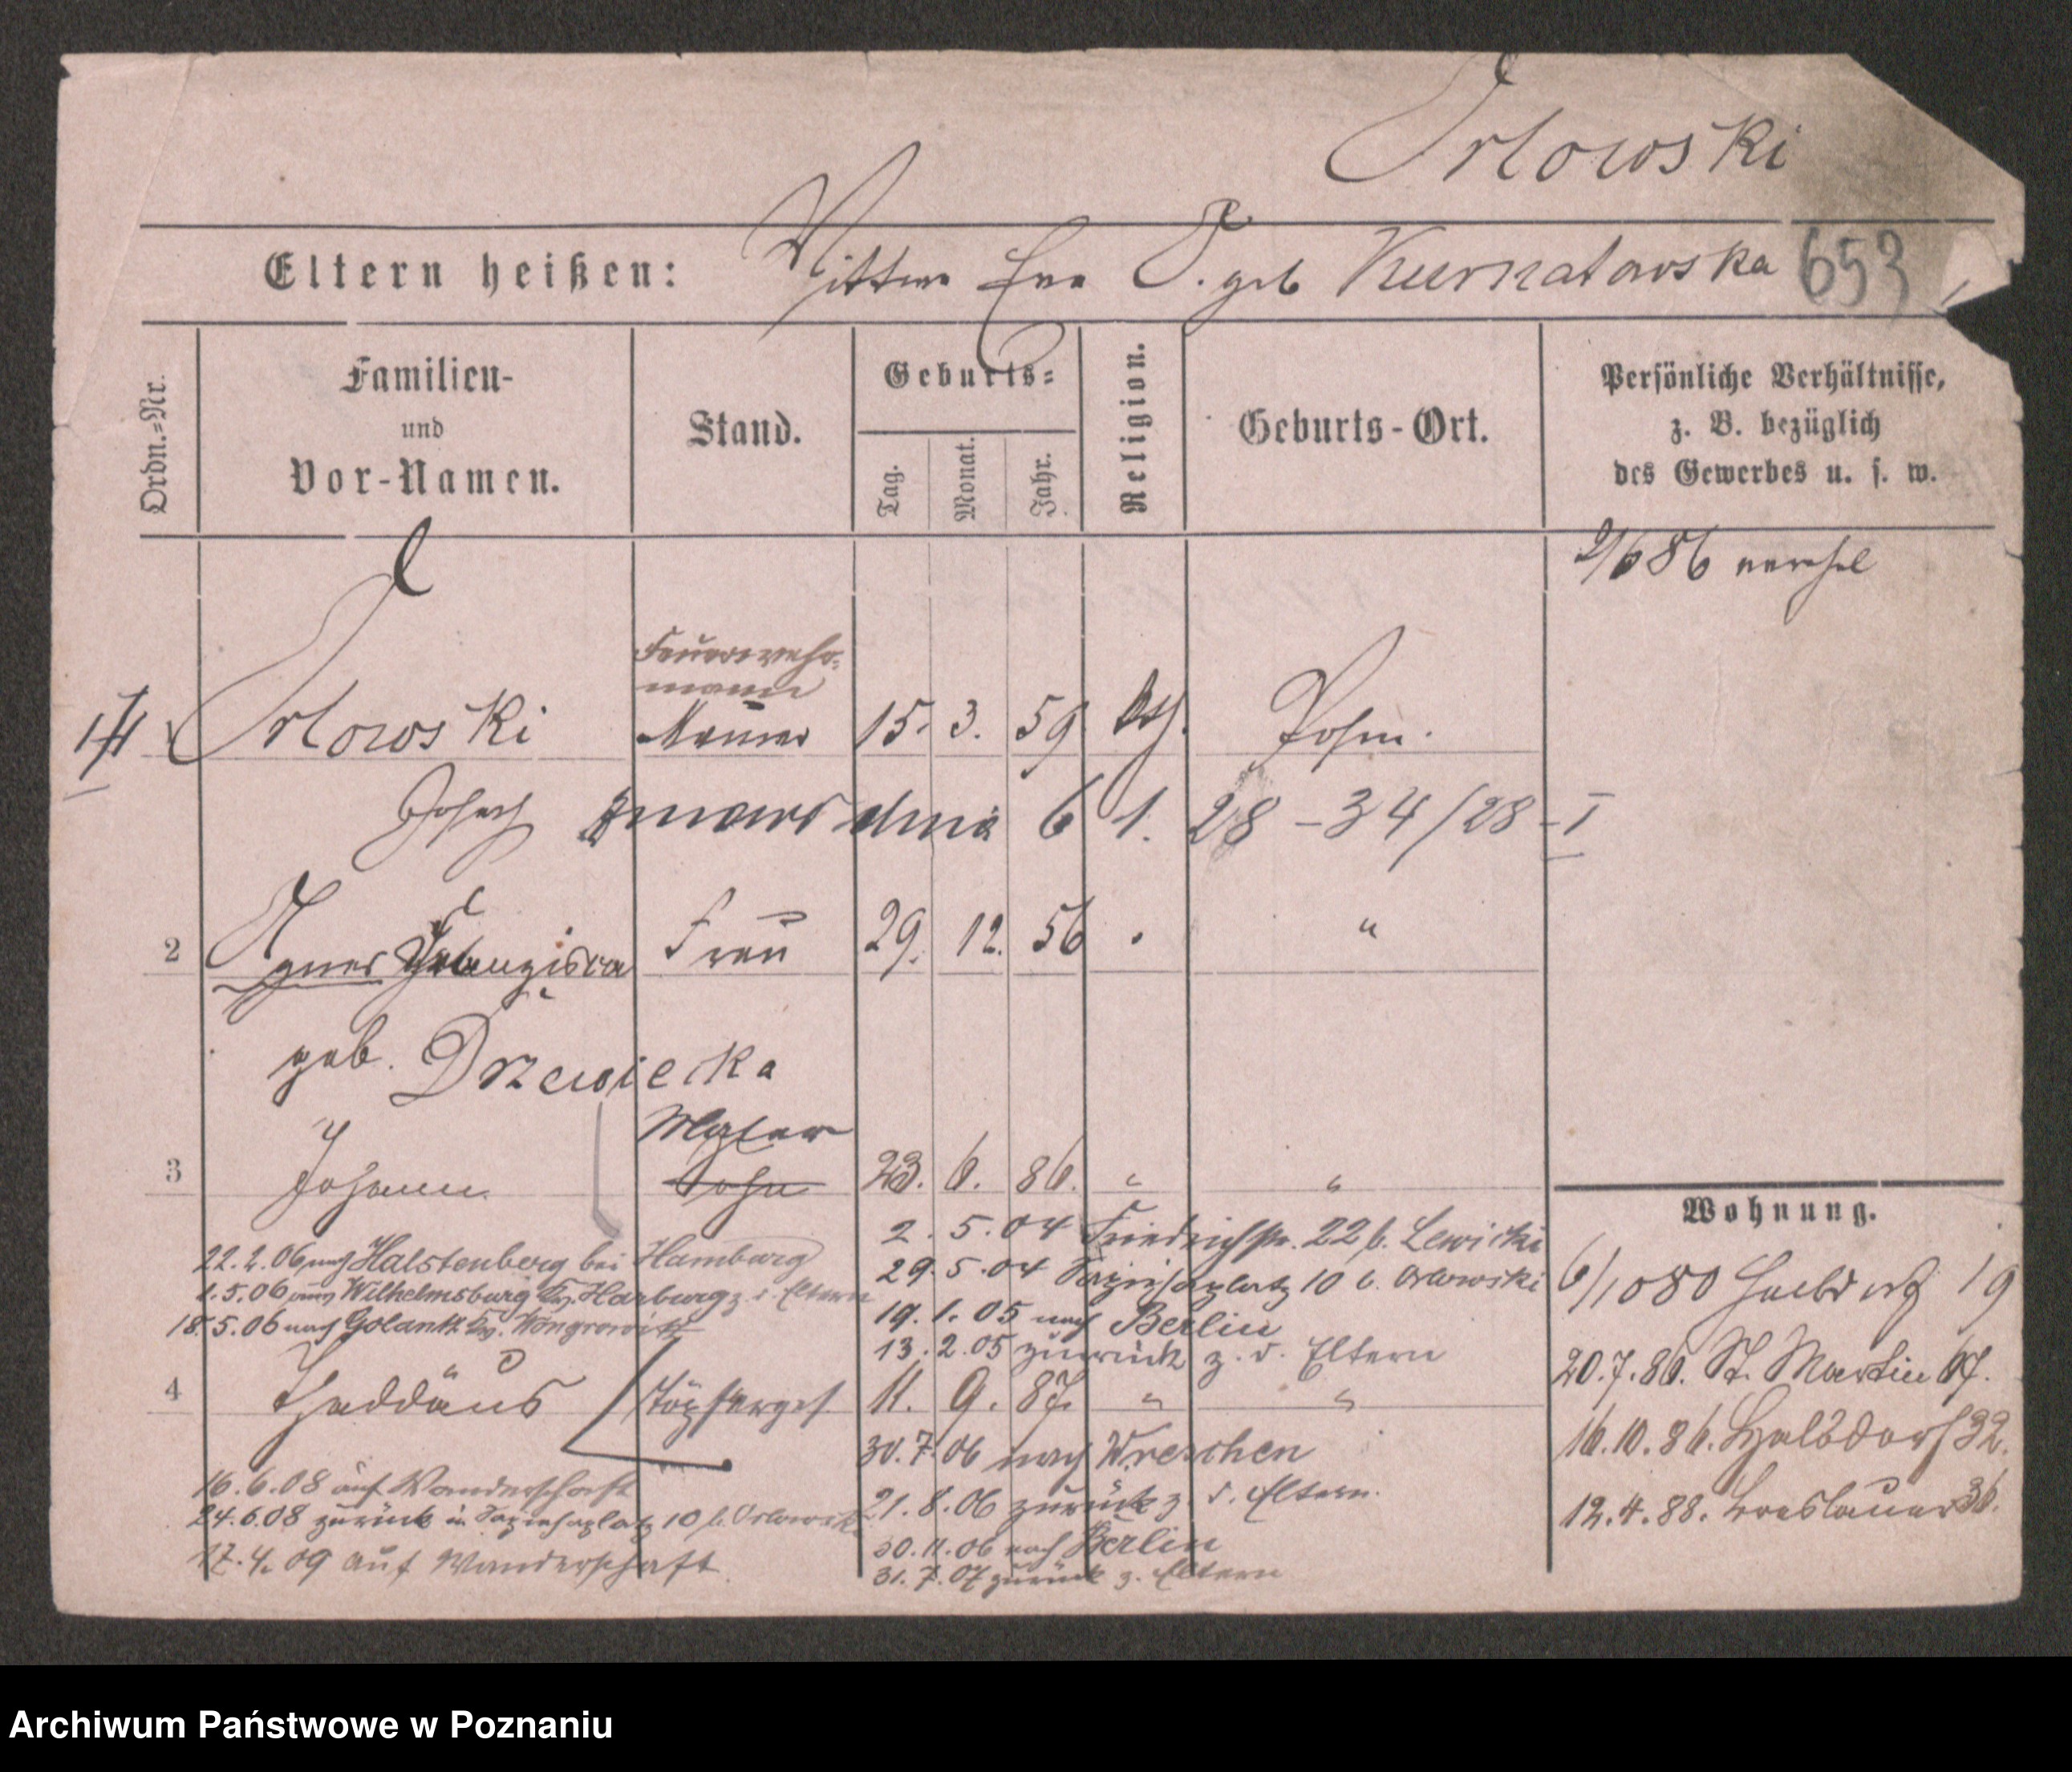 Orlowski
Eltern heißen: Wittwe Eva O. geb Kurnatowska 653
Ordn.-Nr.
Familien-
und
Vor-Namen.
Stand.
Geburts-
Tag.
Monat.
Jahr.
Religion.
Geburts-Ort.
Persönliche Verhältnisse,
z. B. bezüglich
des Gewerbes u. s. w.
Feuerwehr-
mann
Orlowski Maurer 15. 3. 59 Posen.
Josef zmarł dnia 6 1. 28 - 34/28 - I
2 Agnes Franziska Frau 29. 12. 56 "
geb. Drzewiecka
Maler
3 Johann Sohn 23. 6. 86. " "
2. 5. 04 Friedrichstr. 22 b. Lewicki
29. 5. 04 Sapiehaplatz 10 b. Orlowski
19. 1. 05 nach Berlin
13. 2. 05 zurück z. d. Eltern
22. 2. 06 nach Halstenberg bei Hamburg
1. 5. 06 Wilhelmsburg Kr. Harburg z. d. Eltern
18. 5. 06 nach Golantz Kr. Wongrowitz
4 Thaddäus Töpferges. 11. 9. 87. " "
30. 7. 06 nach Wreschen
21. 8. 06 zurück z. d. Eltern.
30. 11. 06 nach Berlin
31. 7. 07 zurück z. Eltern
16. 6. 08 auf Wanderschaft
24. 6. 08 zurück in Sapiehaplatz 10 b. Orlowski
17. 4. 09 auf Wanderschaft
Wohnung.
19
20. 7. 86. St. Martin 67.
16. 10. 86. Halbdorf 32.
12. 4. 88. Breslauer 36.
Archiwum Państwowe w Poznaniu